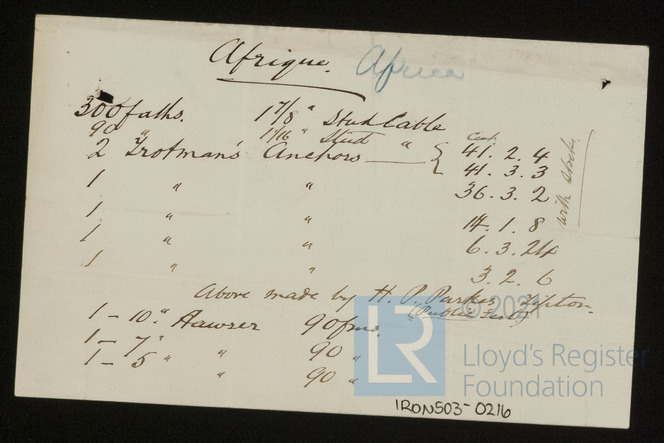 Afrique. Africa
300 faths. 1 7/8 " Stud Cable
90 " 1 1/16 " Stud "
Cwt.
2 Trotman's Anchors { 41. 2. 4
41. 3. 3
1 " " 36. 3. 2
1 " " 14. 1. 8
1 " " 6. 3. 24
1 " " 3. 2. 6
with stocks
Above made by H. P. Parkes Tipton
(Public Test)
1 - 10" Hawser 90 fms.
1 - 7" " 90 "
1 - 5" " 90 "
© 2021
LR
Lloyd's Register
Foundation
IRON503-0216